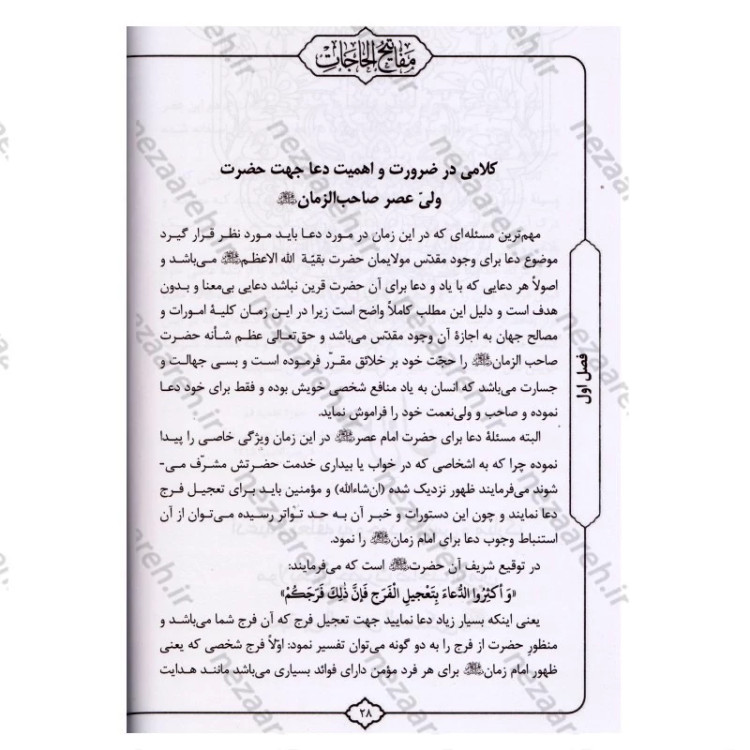 مفاتیح الحاجات
کلامی در ضرورت و اهمیت دعا جهت حضرت
ولیّ عصر صاحب‌الزمان
مهم‌ترین مسئله‌ای که در این زمان در مورد دعا باید مورد نظر قرار گیرد
موضوع دعا برای وجود مقدّس مولایمان حضرت بقیّة الله الاعظم می‌باشد و
اصولاً هر دعایی که با یاد و دعا برای آن حضرت قرین نباشد دعایی بی‌معنا و بدون
هدف است و دلیل این مطلب کاملاً واضح است زیرا در این زمان کلیهٔ امورات و
مصالح جهان به اجازهٔ آن وجود مقدّس می‌باشد و حق‌تعالی عظم شأنه حضرت
صاحب الزمان را حجّت خود بر خلائق مقرّر فرموده است و بسی جهالت و
جسارت می‌باشد که انسان به یاد منافع شخصی خویش بوده و فقط برای خود دعا
نموده و صاحب و ولی‌نعمت خود را فراموش نماید.
البته مسئلهٔ دعا برای حضرت امام عصر در این زمان ویژگی خاصی را پیدا
نموده چرا که به اشخاصی که در خواب یا بیداری خدمت حضرتش مشرّف می‌-
شوند می‌فرمایند ظهور نزدیک شده (ان‌شاءالله) و مؤمنین باید برای تعجیل فرج
دعا نمایند و چون این دستورات و خبر آن به حد تواتر رسیده می‌توان از آن
استنباط وجوب دعا برای امام زمان را نمود.
در توقیع شریف آن حضرت است که می‌فرمایند:
«وَ أَکْثِرُوا الدُّعاءَ بِتَعْجیلِ الْفَرَجِ فَإِنَّ ذٰلِکَ فَرَجُکُمْ»
یعنی اینکه بسیار زیاد دعا نمایید جهت تعجیل فرج که آن فرج شما می‌باشد و
منظور حضرت از فرج را به دو گونه می‌توان تفسیر نمود: اوّلاً فرج شخصی که یعنی
ظهور امام زمان برای هر فرد مؤمن دارای فوائد بسیاری می‌باشد مانند هدایت
فصل اول
۲۸
nezaareh.ir